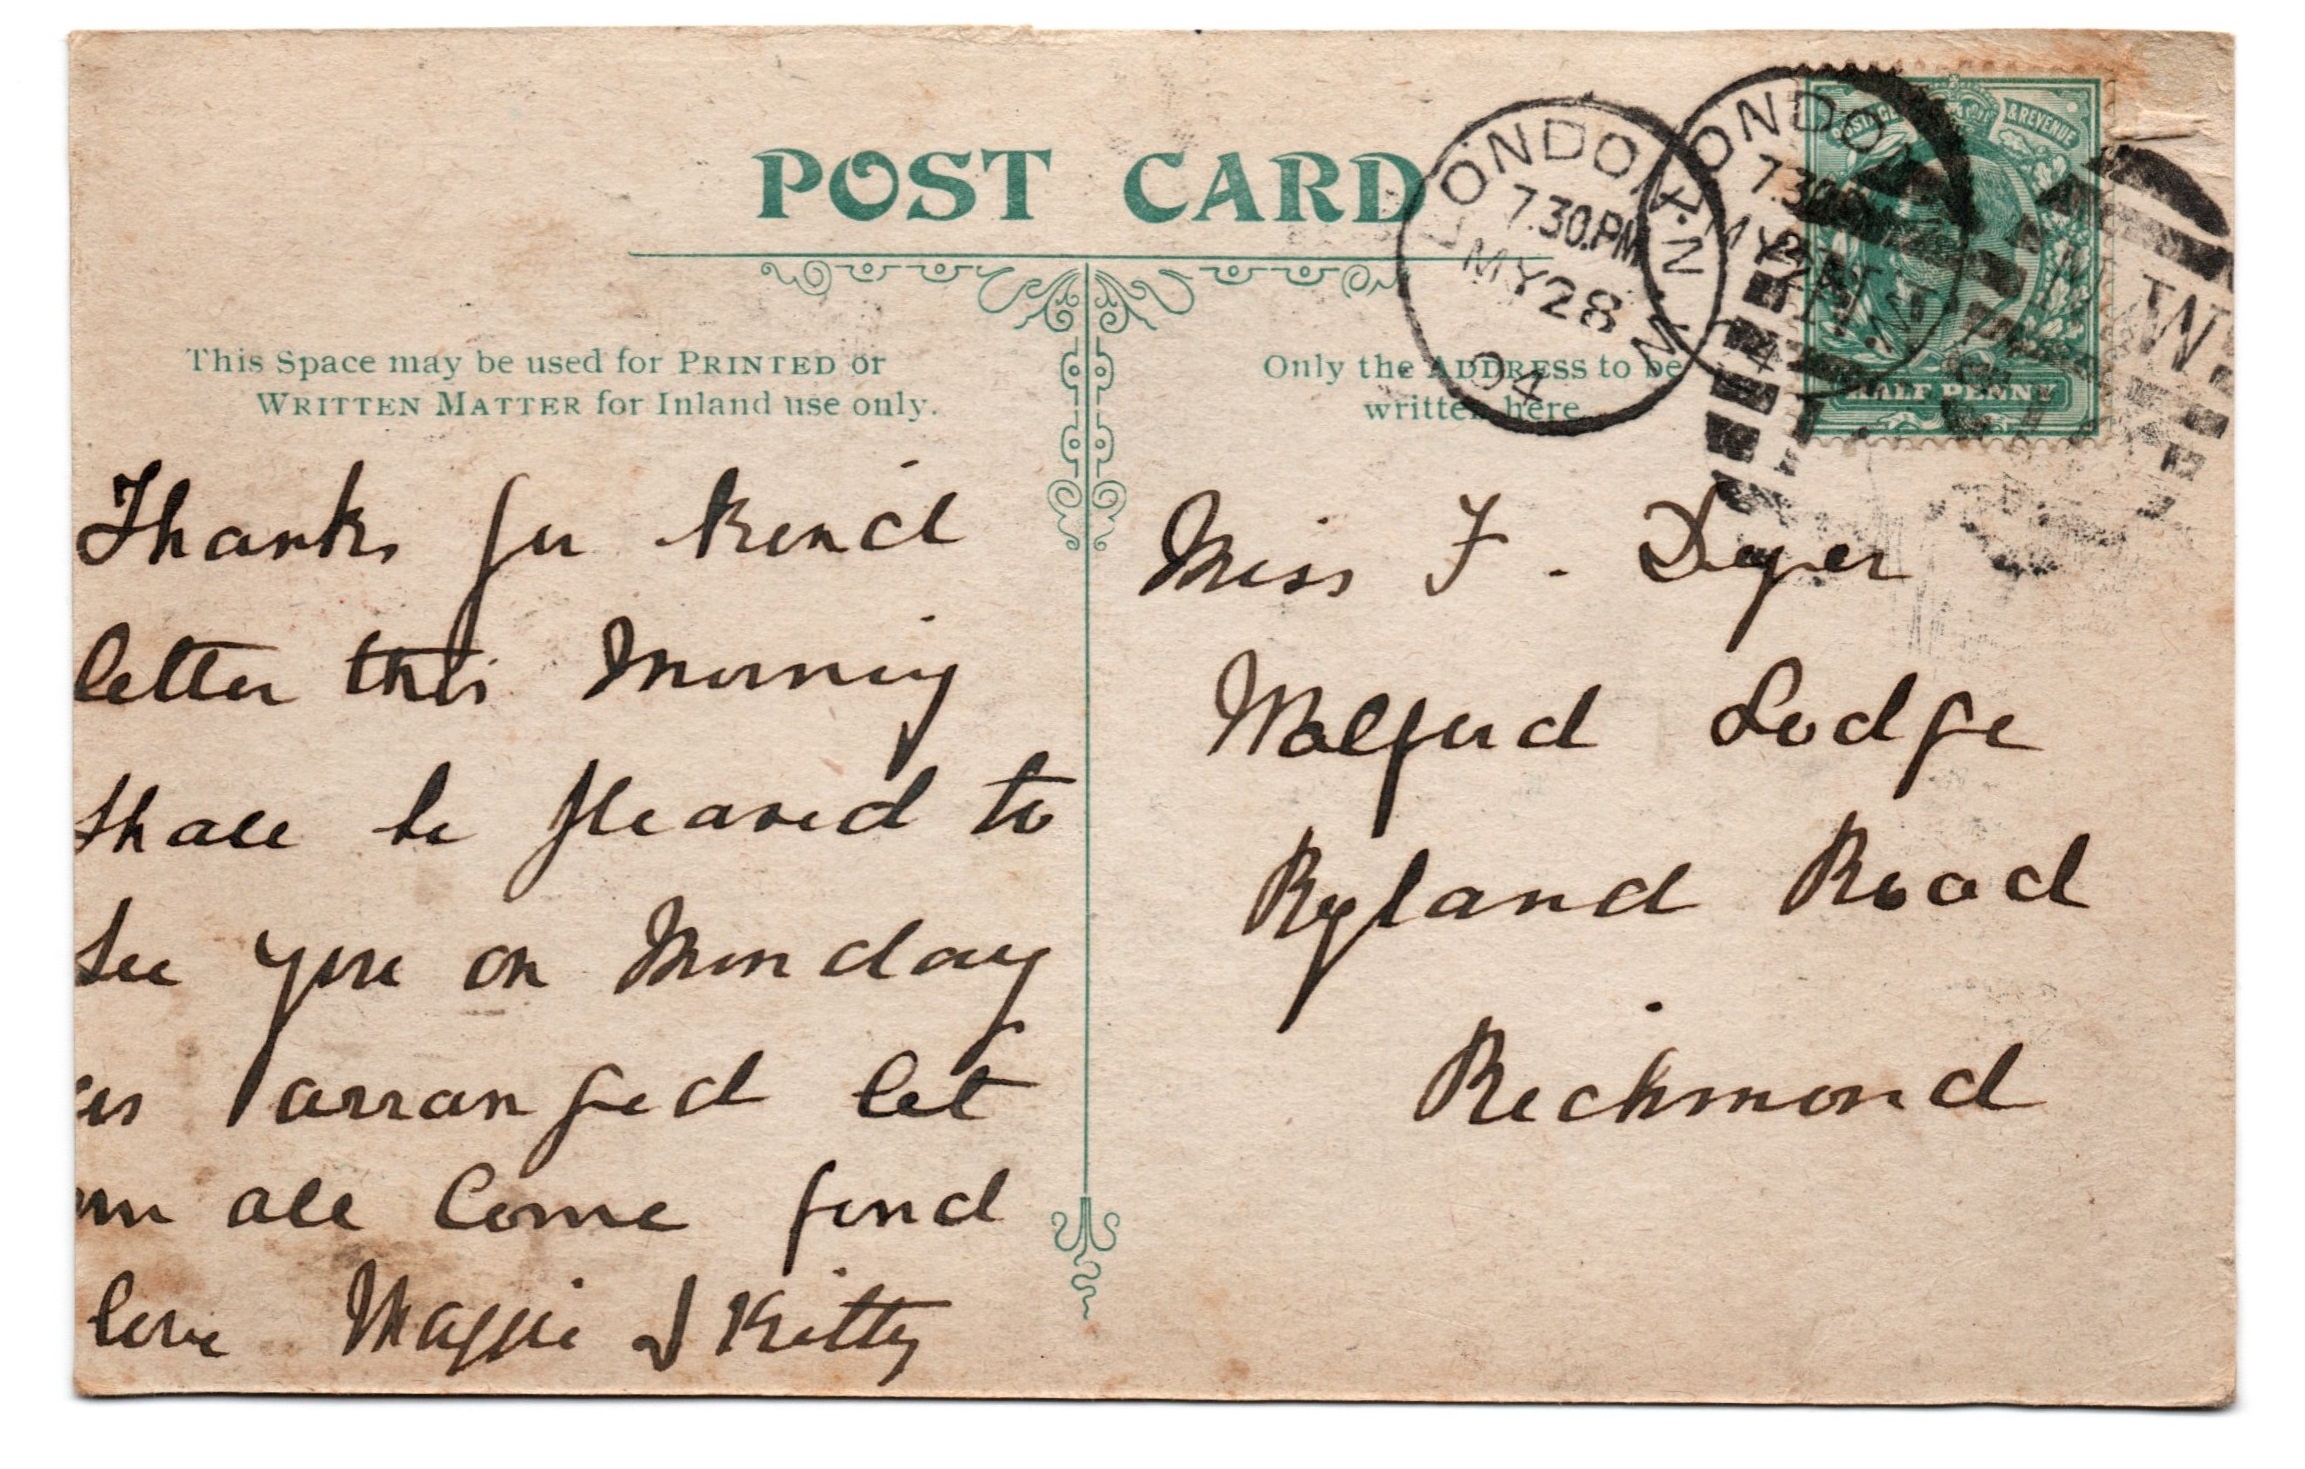 POST CARD
This Space may be used for PRINTED or
WRITTEN MATTER for Inland use only.
Only the ADDRESS to be
written here.
LONDON. N.W.
7.30.PM
MY 28
04
LONDON. N.W.
7.30.PM
MY 28
04
POSTAGE & REVENUE
HALF PENNY
N.W.
Thanks for kind
letter this Morning
Shall be pleased to
See you on Monday
as arranged let
em all Come fond
love Maggie & Kitty
Miss F. Dyer
Walford Lodge
Ryland Road
Richmond